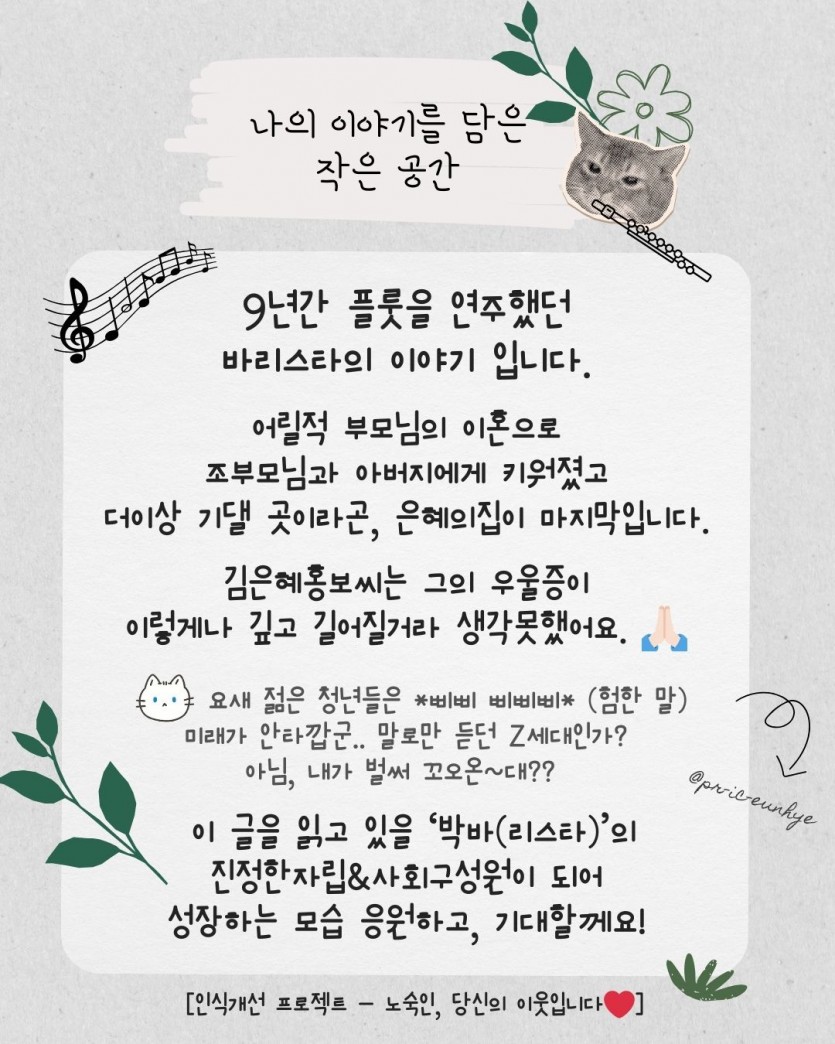 나의 이야기를 담은
작은 공간
9년간 플룻을 연주했던
바리스타의 이야기 입니다.
어릴적 부모님의 이혼으로
조부모님과 아버지에게 키워졌고
더이상 기댈 곳이라곤, 은혜의집이 마지막입니다.
김은혜홍보씨는 그의 우울증이
이렇게나 깊고 길어질거라 생각못했어요. 🙏🏻
요새 젊은 청년들은 *삐삐 삐삐삐* (험한 말)
미래가 안타깝군.. 말로만 듣던 Z세대인가?
아님, 내가 벌써 꼬오온~대??
@pr-ic-eunhye
이 글을 읽고 있을 ‘박바(리스타)’의
진정한자립&사회구성원이 되어
성장하는 모습 응원하고, 기대할께요!
[인식개선 프로젝트 – 노숙인, 당신의 이웃입니다❤️]